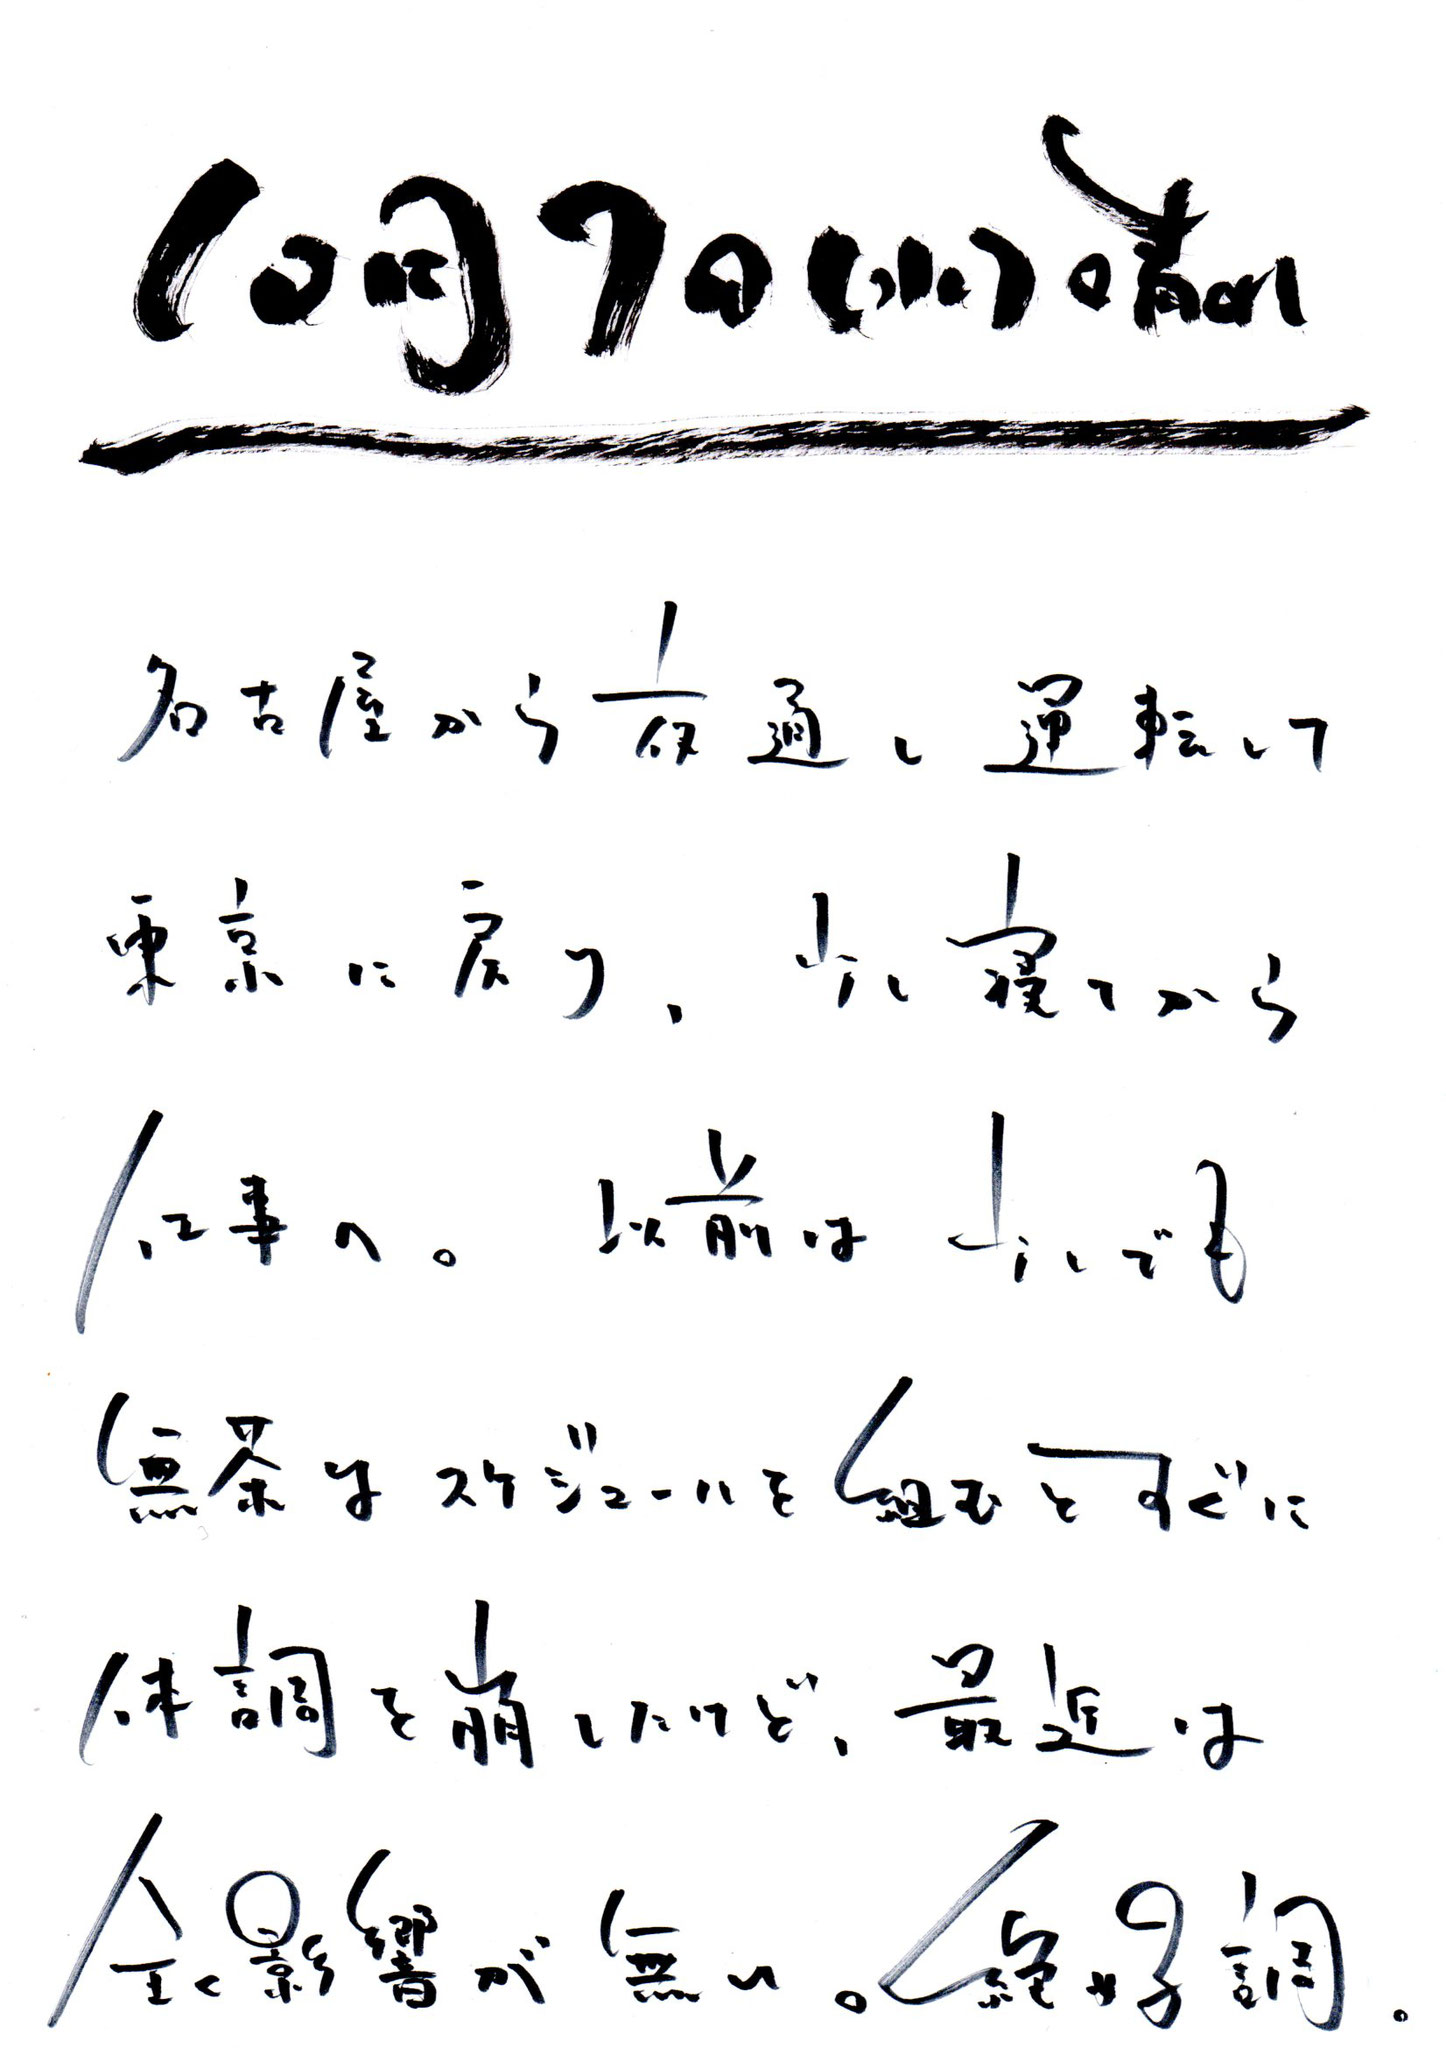 10月7日(水)晴れ
名古屋から夜通し運転して
東京に戻り、少し寝てから
仕事へ。以前は少しでも
無茶なスケジュールを組むとすぐに
体調を崩したけど、最近は
全く影響が無い。絶好調。